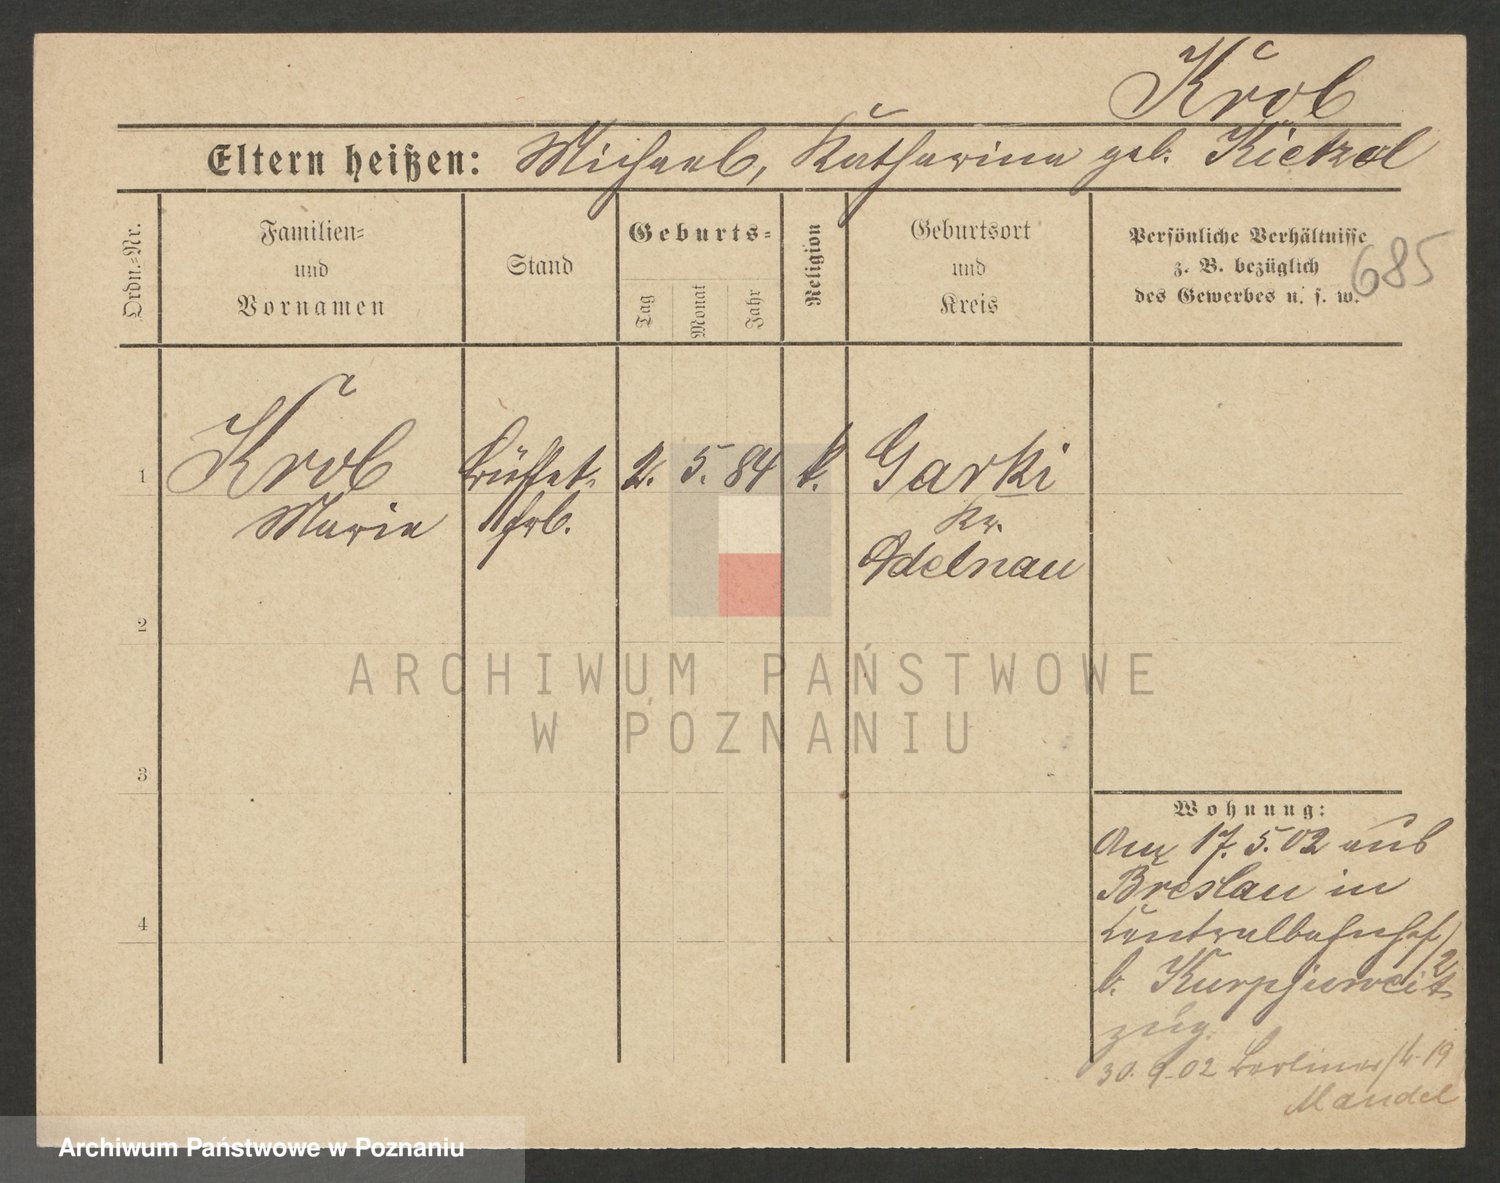 Krob
Eltern heißen: Michael, Katharina geb. Kietzol
Ordn.-Nr.
Familien-
und
Vornamen
Stand
Geburts-
Tag
Monat
Jahr
Religion
Geburtsort
und
Kreis
Persönliche Verhältnisse
z. B. bezüglich
des Gewerbes u. s. w.
685
1
Krob
Marie
Büffet-
frl.
2. 5. 84
k.
Garki
Kr.
Adelnau
2
3
4
Wohnung:
Anz 17. 5. 02 aus
Breslau in
Centralbahnhof/2
b.
zug.
30. 9. 02 Berliner/str 19
Mandel
ARCHIWUM PAŃSTWOWE
W POZNANIU
Archiwum Państwowe w Poznaniu